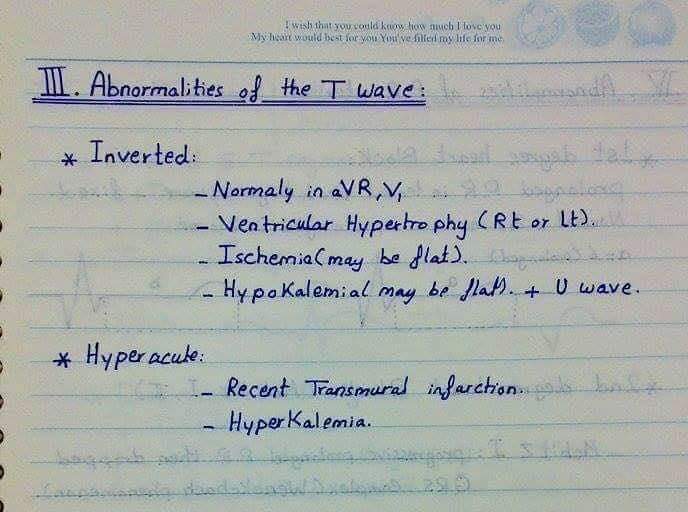 I wish that you could know how much I love you
My heart would best for you You've filled my life for me.
III. Abnormalities of the T wave:
* Inverted:
- Normaly in aVR, V1
- Ventricular Hypertrophy (Rt or Lt).
- Ischemia (may be flat).
- Hypokalemia (may be flat). + U wave.
* Hyperacute:
- Recent Transmural infarction.
- HyperKalemia.